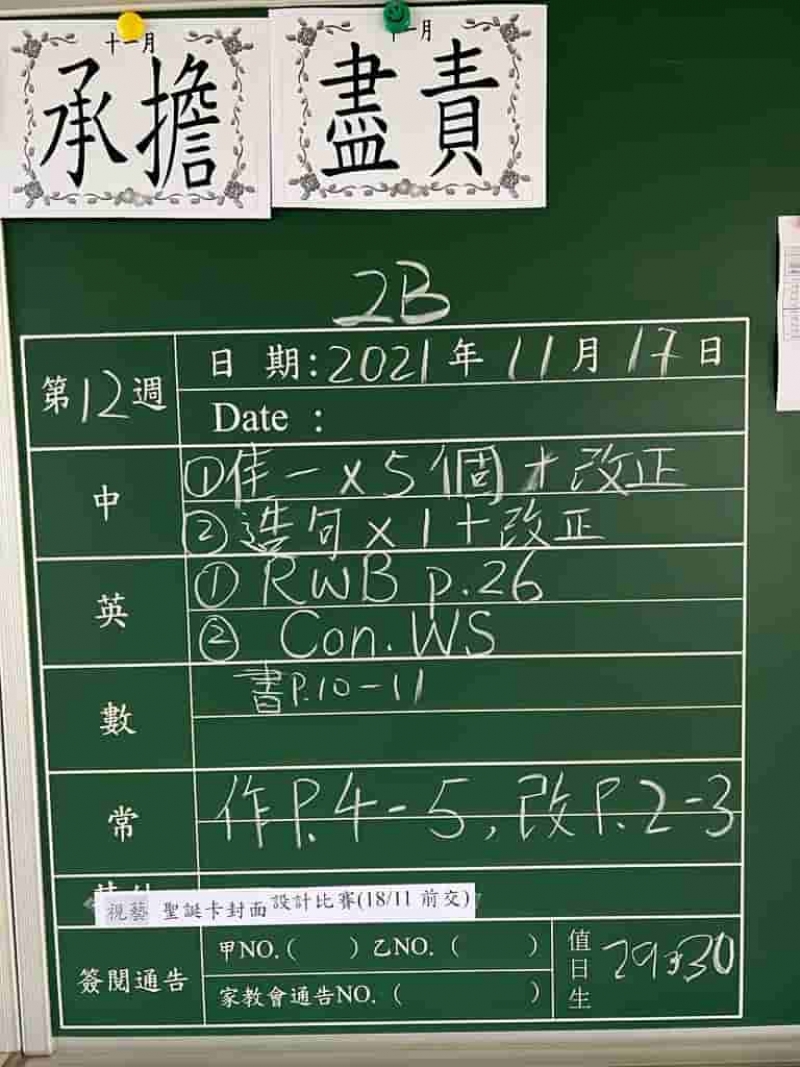 十一月
承擔
十一月
盡責
2B
第12週
日 期:2021年11月17日
Date :
中
①佳一x5個+改正
②造句x1+改正
英
① RWB p.26
② Con. WS
數
書P.10-11
常
作P.4-5,改P.2-3
視藝 聖誕卡封面設計比賽(18/11 前交)
簽閱通告
甲NO.( ) 乙NO.( )
家教會通告NO.( )
值日生
29,30